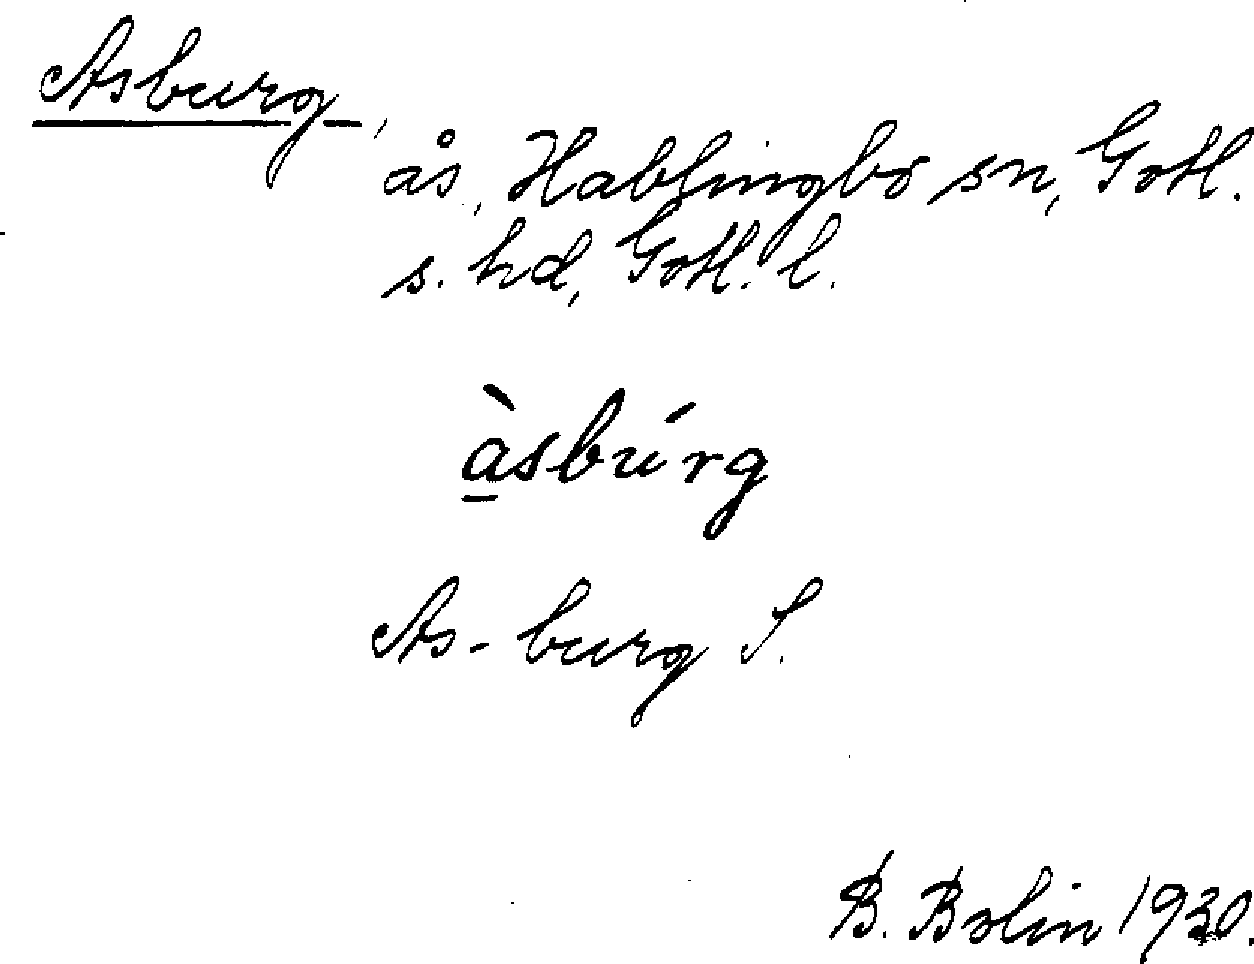 Asburg,
ås, Hablingbo sn, Gotl.
s. hd, Gotl. l.
à̱sbúrg
As-burg S.
B. Bolin 1930.